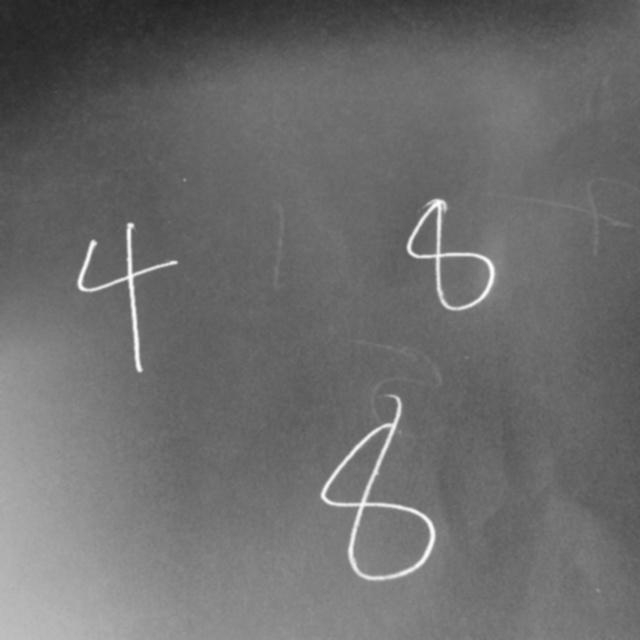 4 8
8